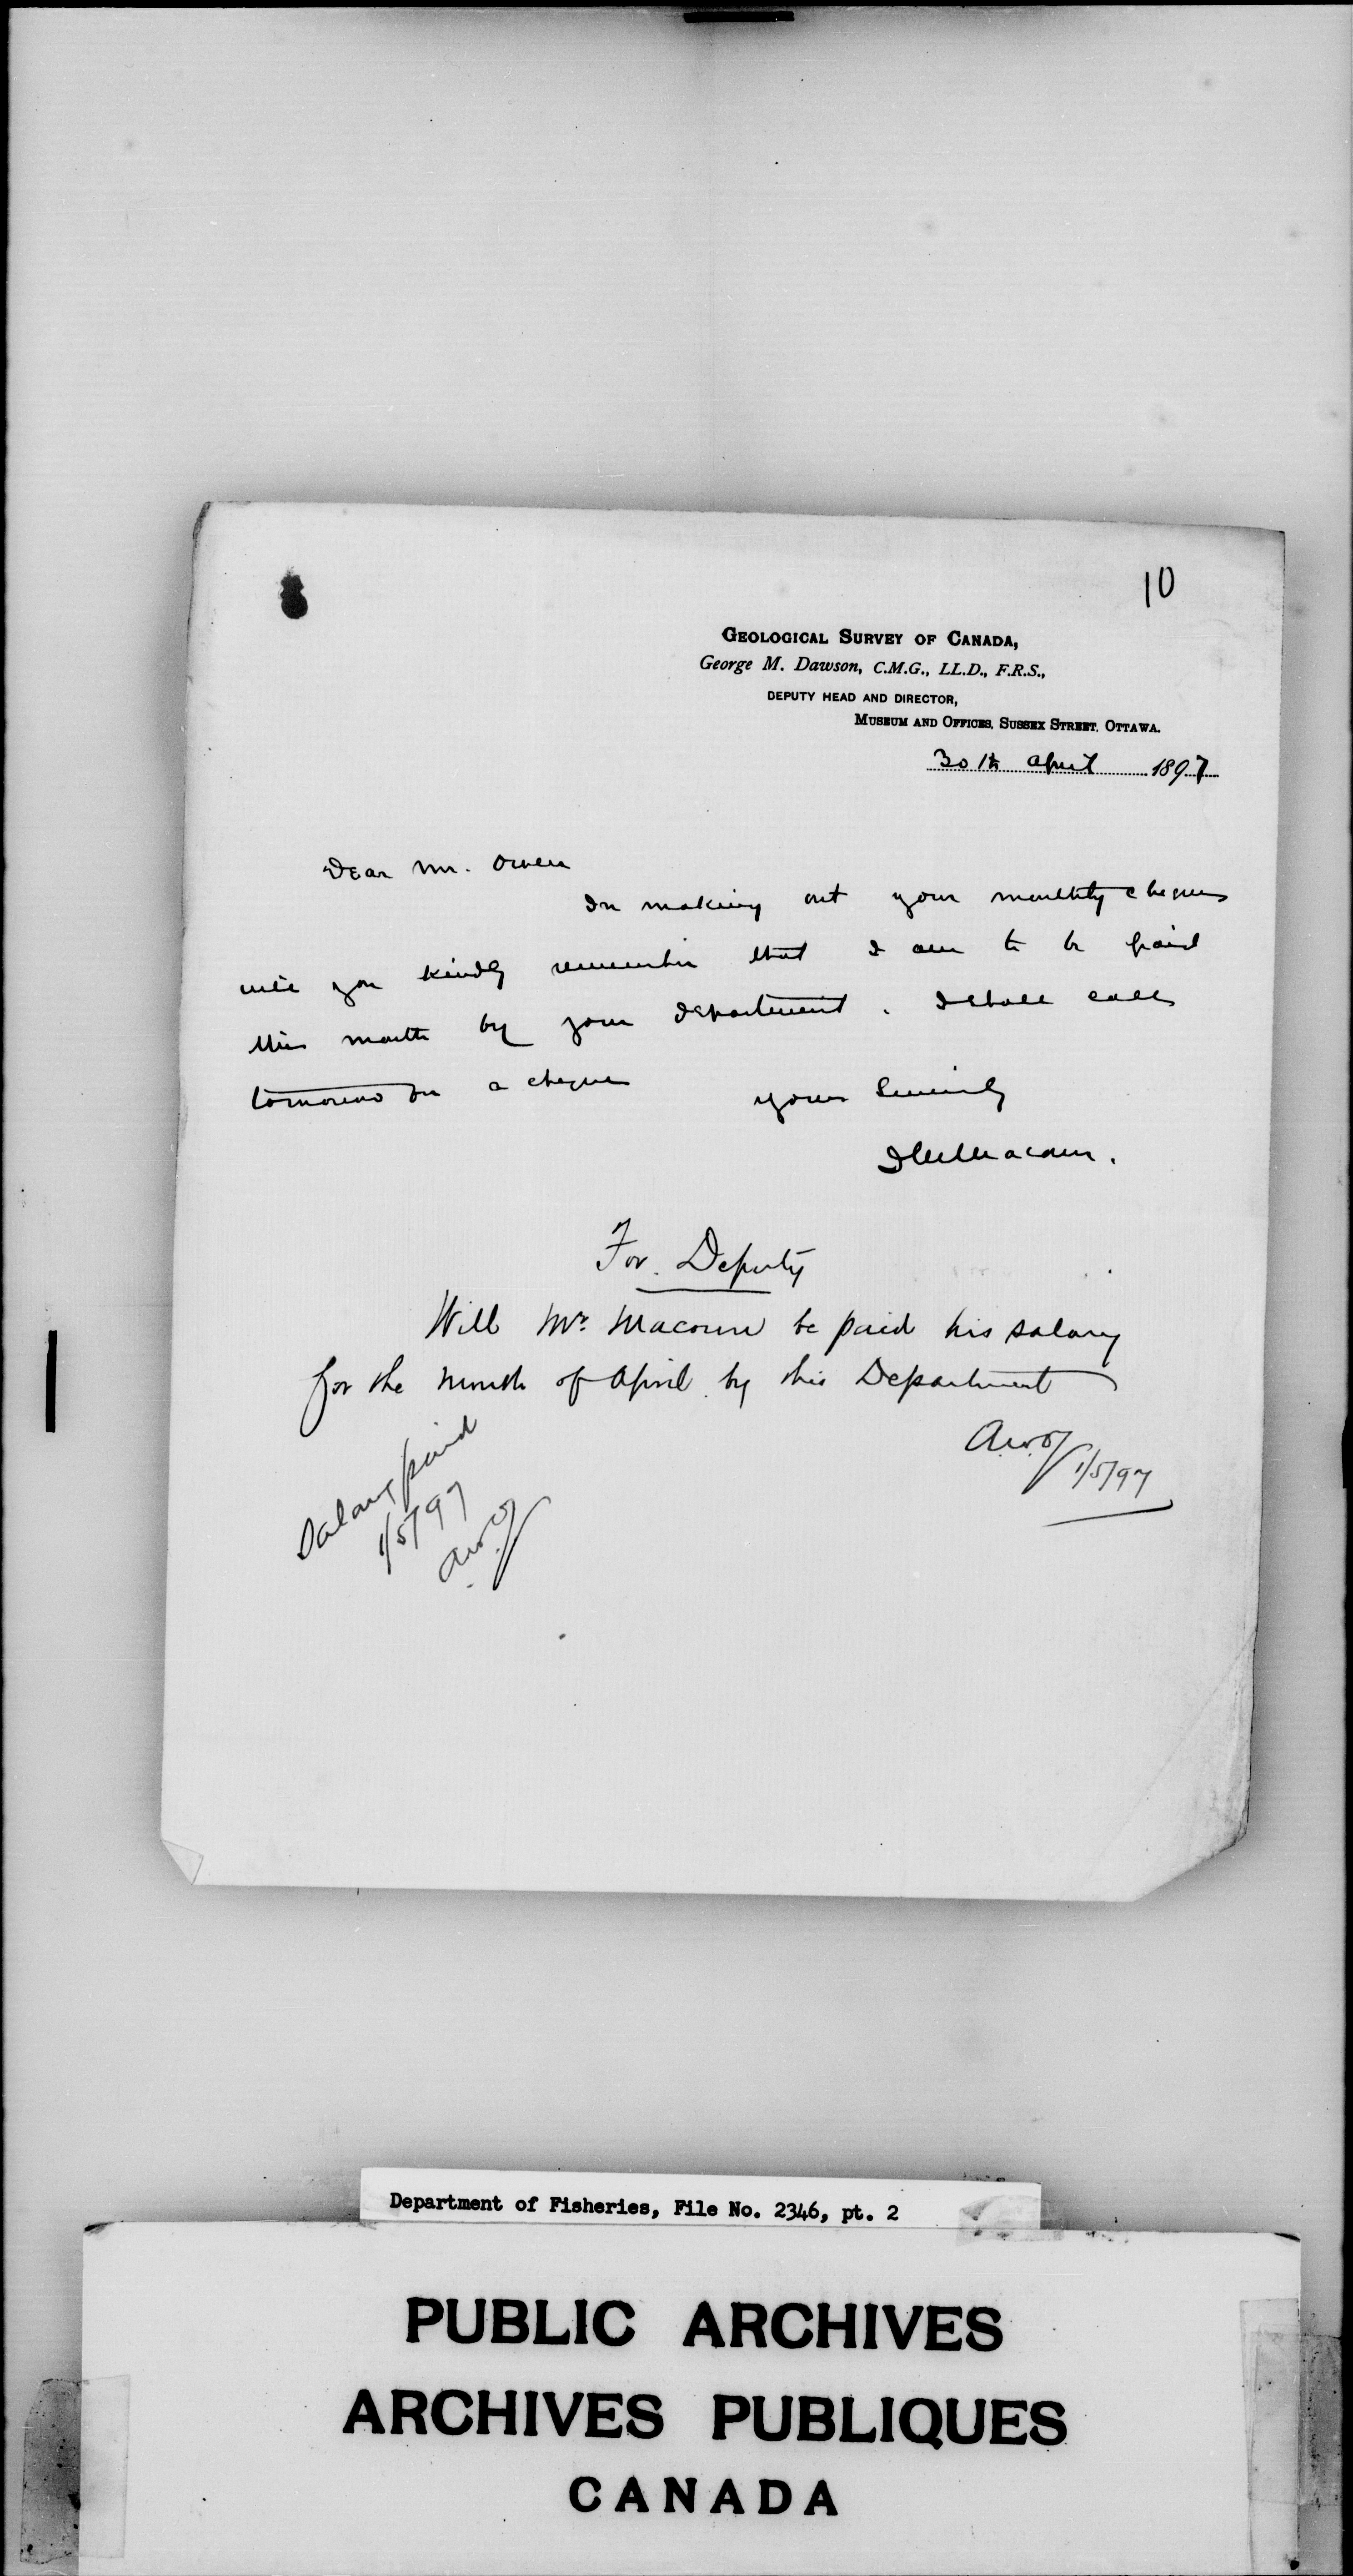 10
GEOLOGICAL SURVEY OF CANADA,
George M. Dawson, C.M.G., LL.D., F.R.S.,
DEPUTY HEAD AND DIRECTOR,
MUSEUM AND OFFICES, SUSSEX STREET, OTTAWA.
30th April 1897
Dear Mr. Owen
In making out your monthly cheques
will you kindly remember that I am to be paid
this month by your department. I shall call
tomorrow for a cheque
yours sincerely
J M Macoun.
For Deputy
Will Mr. Macoun be paid his salary
for the month of April by this Department
A.W.O. 1/5/97
Salary paid
1/5/97
A.W.O.
Department of Fisheries, File No. 2346, pt. 2
PUBLIC ARCHIVES
ARCHIVES PUBLIQUES
CANADA